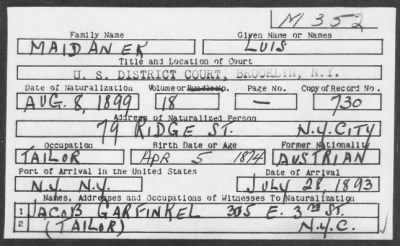 M 352
Family Name Given Name or Names
MAIDANEK LUIS
Title and Location of Court
U. S. DISTRICT COURT, BROOKLYN, N.Y.
Date of Naturalization Volume or Bundle No. Page No. Copy of Record No.
AUG. 8, 1899 18 — 730
Address of Naturalized Person
79 RIDGE ST. N.Y. CITY
Occupation Birth Date or Age Former Nationality
TAILOR APR 5 1874 AUSTRIAN
Port of Arrival in the United States Date of Arrival
N.Y. N.Y. JULY 28, 1893
Names, Addresses and Occupations of Witnesses To Naturalization
1 JACOB GARFINKEL 305 E. 3RD ST.
2 (TAILOR) N.Y.C.